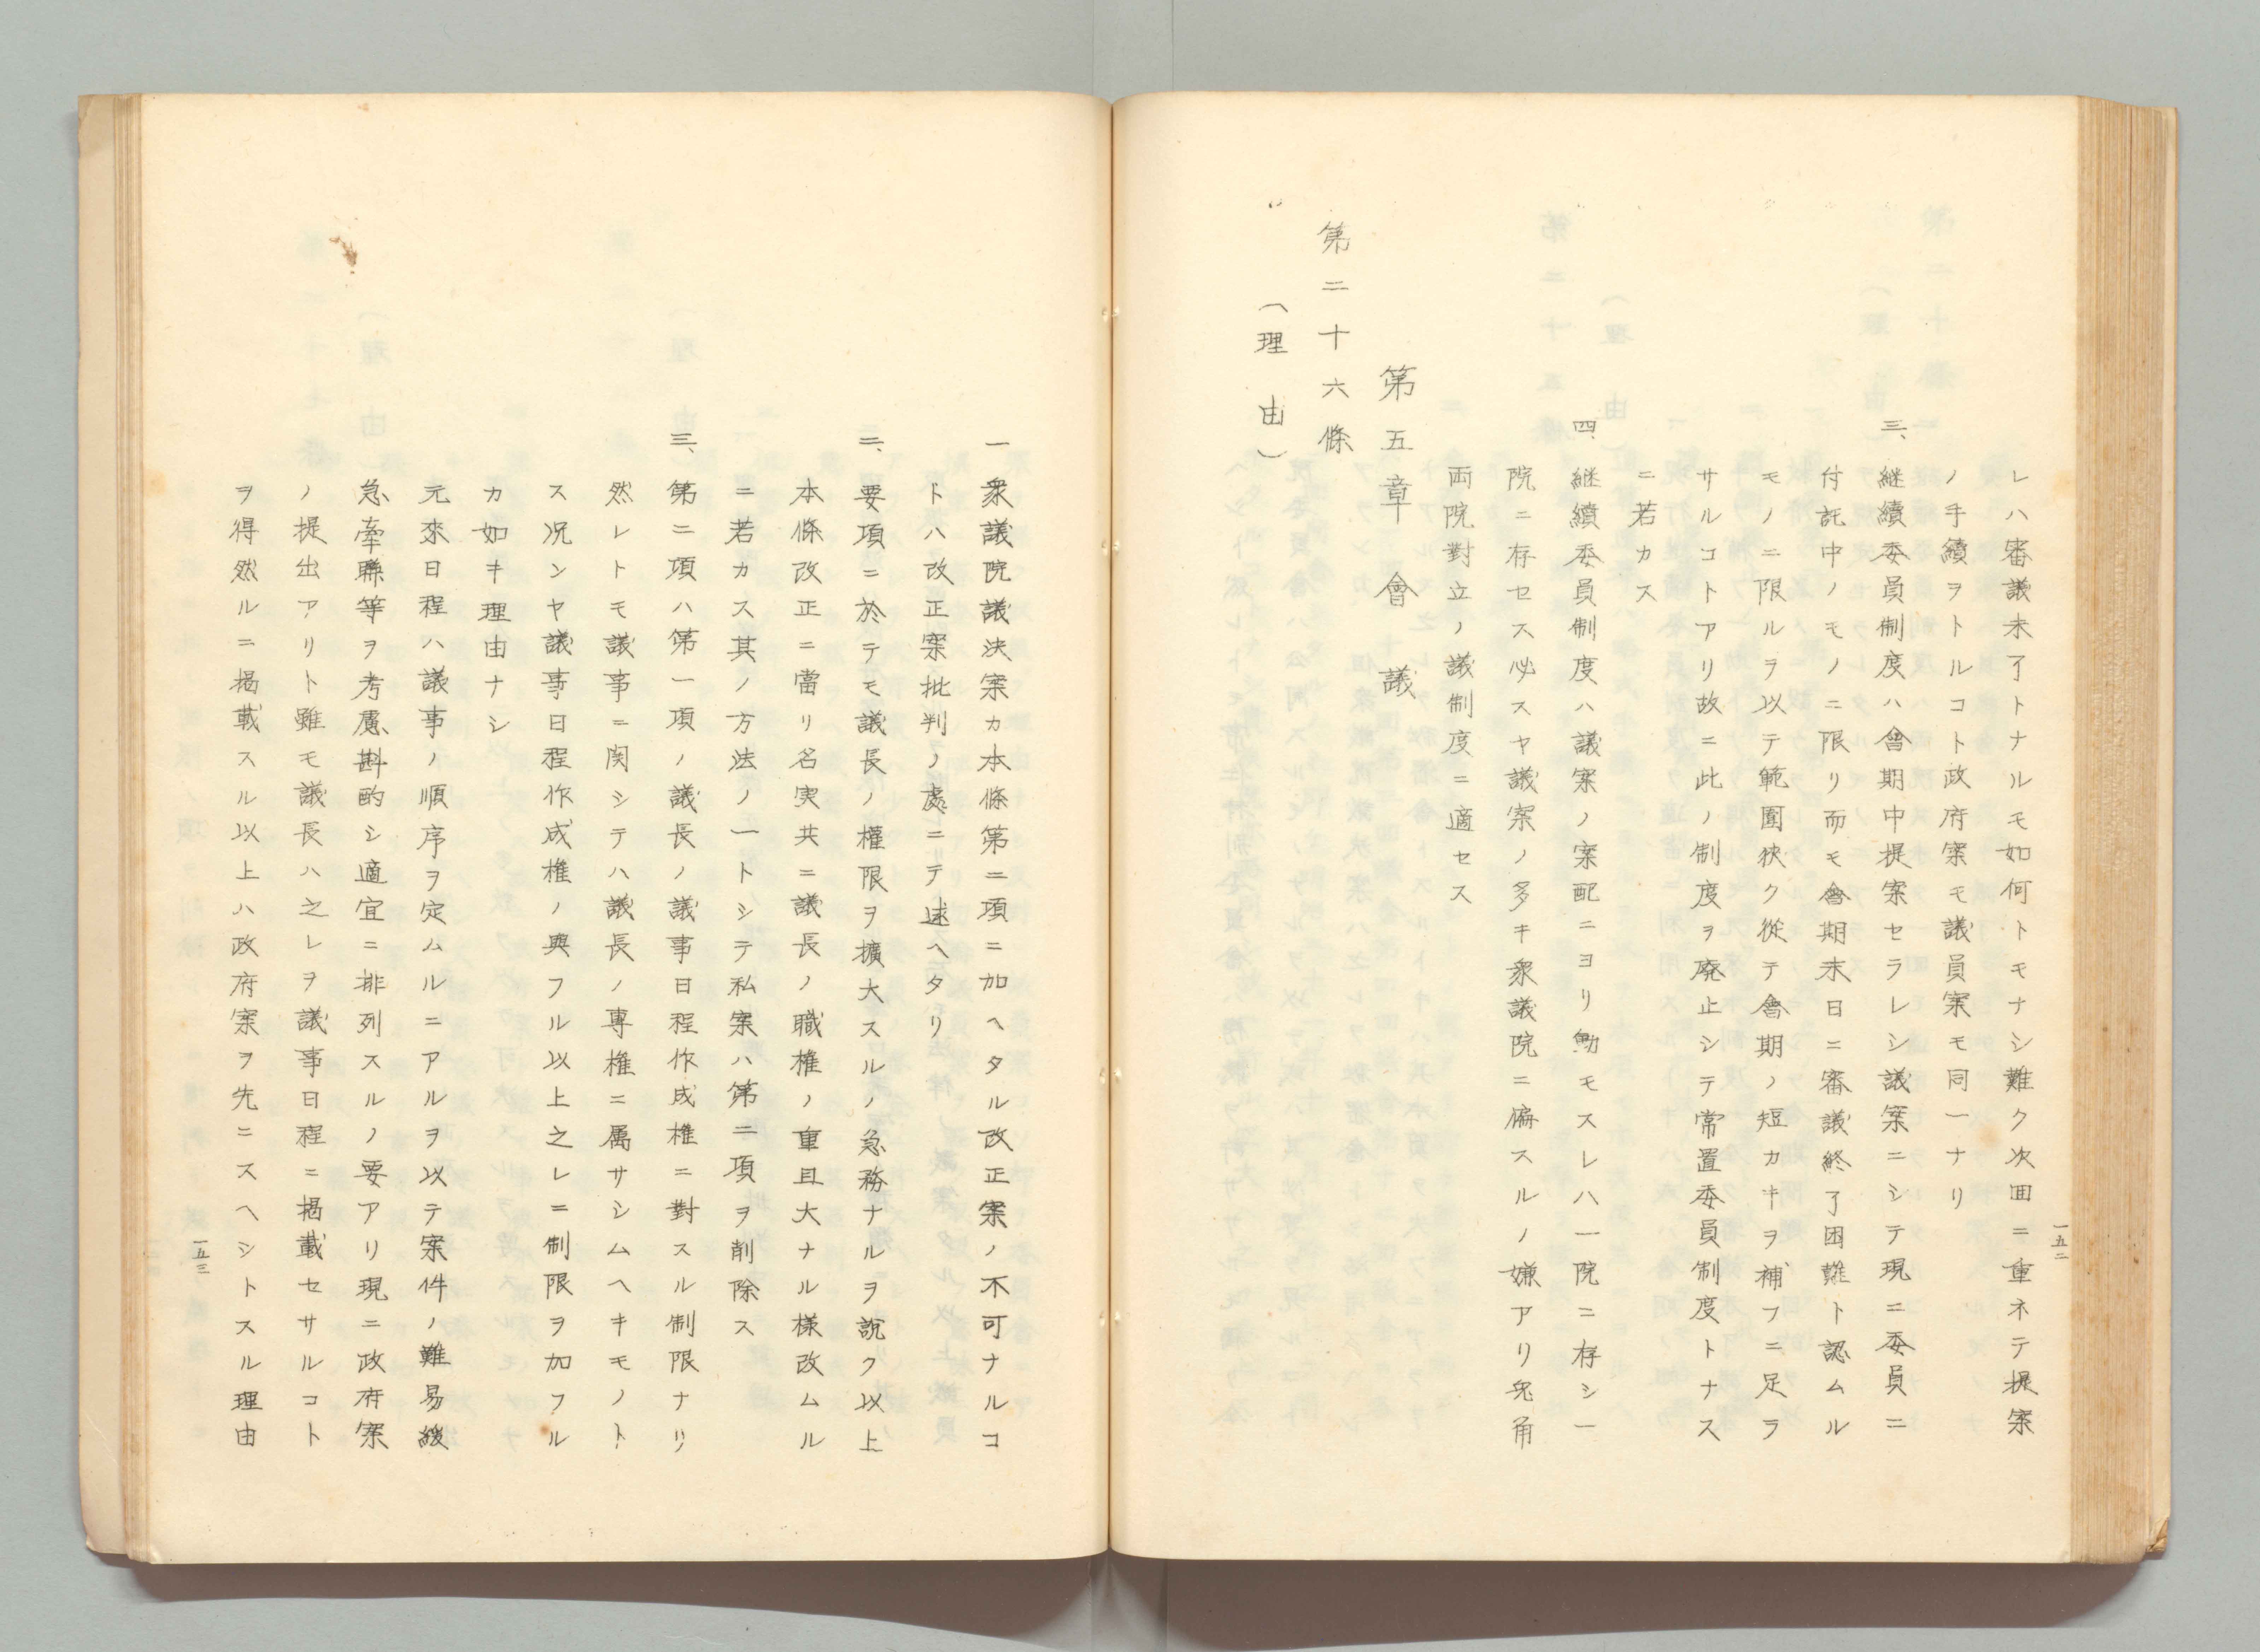 一五二
レハ審議未了トナルモ如何トモナシ難ク次回ニ重ネテ提案
ノ手續ヲトルコト政府案モ議員案モ同一ナリ
三、継續委員制度ハ會期中提案セラレシ議案ニシテ現ニ委員ニ
付託中ノモノニ限リ而モ會期末日ニ審議終了困難ト認ムル
モノニ限ルヲ以テ範圍狹ク從テ會期ノ短カキヲ補フニ足ラ
サルコトアリ故ニ此ノ制度ヲ廃止シテ常置委員制度トナス
ニ若カス
四、継續委員制度ハ議案ノ案配ニヨリ動モスレハ一院ニ存シ一
院ニ存セス必スヤ議案ノ多キ衆議院ニ偏スルノ嫌アリ兎角
両院對立ノ議制度ニ適セス
第五章會議
第二十六條
（理由）
一衆議院議決案カ本條第二項ニ加ヘタル改正案ノ不可ナルコ
トハ改正案批判ノ處ニテ述ヘタリ
二、要項ニ於テモ議長ノ權限ヲ擴大スルノ急務ナルヲ說ク以上
本條改正ニ當リ名実共ニ議長ノ職権ノ重且大ナル様改ムル
ニ若カス其ノ方法ノ一トシテ私案ハ第二項ヲ削除ス
三、第二項ハ第一項ノ議長ノ議事日程作成権ニ對スル制限ナリ
然レトモ議事ニ関シテハ議長ノ專権ニ属サシムヘキモノト
ス況ンヤ議事日程作成権ノ與フル以上之レニ制限ヲ加フル
カ如キ理由ナシ
元來日程ハ議事ノ順序ヲ定ムルニアルヲ以テ案件ノ難易緩
急牽聯等ヲ考慮斟酌シ適宜ニ排列スルノ要アリ現ニ政府案
ノ提出アリト雖モ議長ハ之レヲ議事日程ニ揭載セサルコト
ヲ得然ルニ揭載スル以上ハ政府案ヲ先ニスヘシトスル理由
一五三